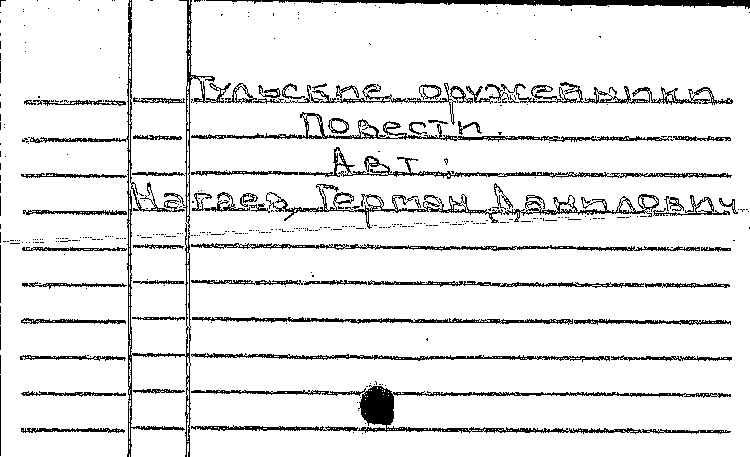 Тульские оружейники
Повести.
Авт:
Нагаев, Герман Данилович